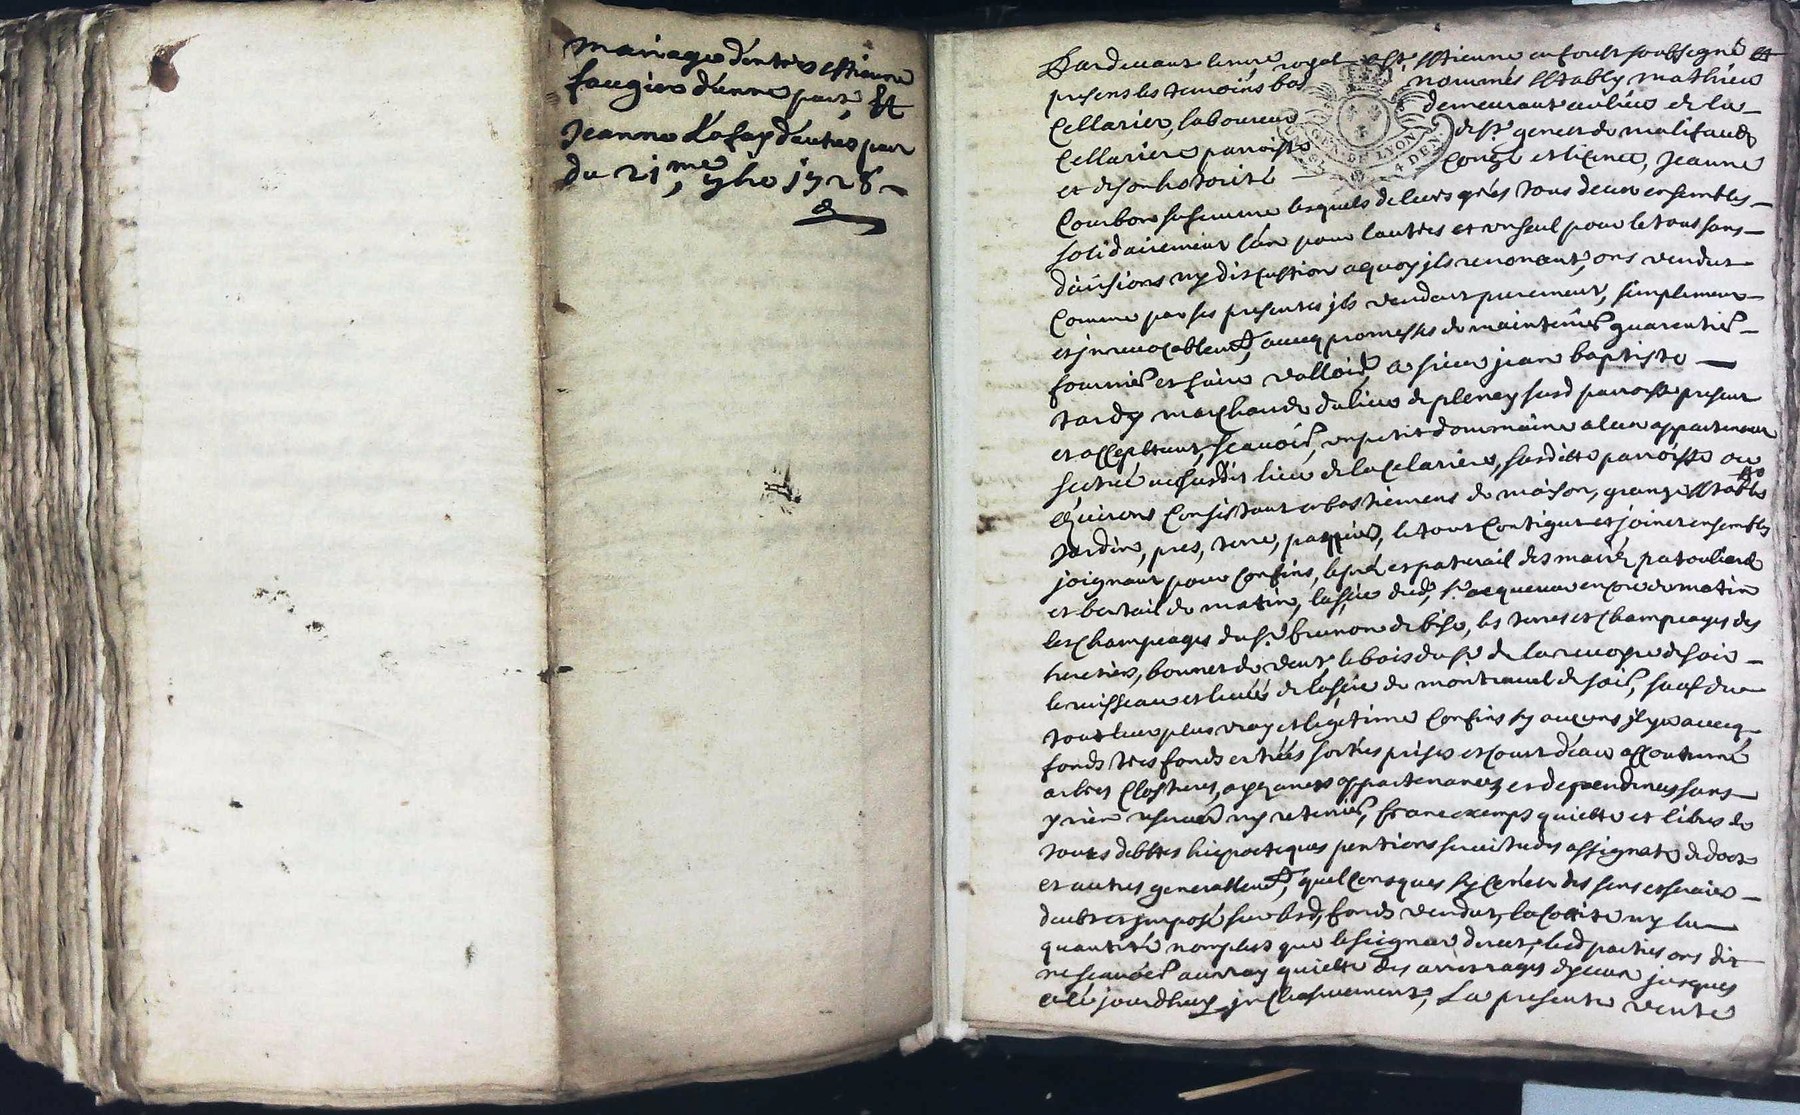 mariage d'entre estienne
faugier d'enne part, Et
jeanne Lofay d'autre part
du 21me, 7bre 1728
Pardevant le nore royal a St estienne en forest soubsigné et
presens les temoins bas nommés Estably mathieu
Cellarier, laboureur demeurant au lieu de la
Cellarière parroisse de st genest de malifaud
et de son hotorité congé et licence, jeanne
Courbon sa femme lesquels de leurs grés tous deux ensembles
solidairement l'un pour l'autre et un seul pour le tout sans
divisions ny discustion a quoy jls renoncent, ons vendut
Comme par ses presentes jls vendent purement, simplement
et jrrevocablemt, avecq promesses de maintenir guarentir
fournir et faire valloir, a sieur jean baptiste
tardy marchand du lieu de pleney susd parroisse present
et acceptant, Scavoir, un petit dommaine a eux appartenant
scittué au susdit lieu de la Celarière, susditte parroisse ou
es environs Consistant en bastiemens de maison, grange Estable
jardins, pres, terre, paquier, le tout Contigut et joinct ensembles
joignant pour Confins, le pré et paturail des mariés patouliard
et bertail de matin, la scie dud, sr encore de matin
les Champeages du sr frumon de bise, les terres et Champeages des
heretiers, bonnet de vent, le bois du sr de la de soir
le ruisseau et de la scie de montreuil de soir, sauf de
tout leurs plus vray et legitime Confins sy aucuns jl y a avecq
fonds tres fonds entrées sorties prises et Court d'eau accoutumé
arbres Clostures, appartenances et dependences sans
y rien reserver ny retenir, franc exemps quictte et libres de
touts debttes hipotteques pentions servitudes assignats de dots
et autres generallemt, quelConsques sy Ce n'est des sens et servis
deubt et jmposé sur lesd, fonds vendut, la Cottitte ny la
quantité non plus que le seigneur direct, lesd parties ons dit
ne scavoir au vray quictte des arrerages d'jceux jusques
a ce jourdhuy jncluzivement, La presente vente